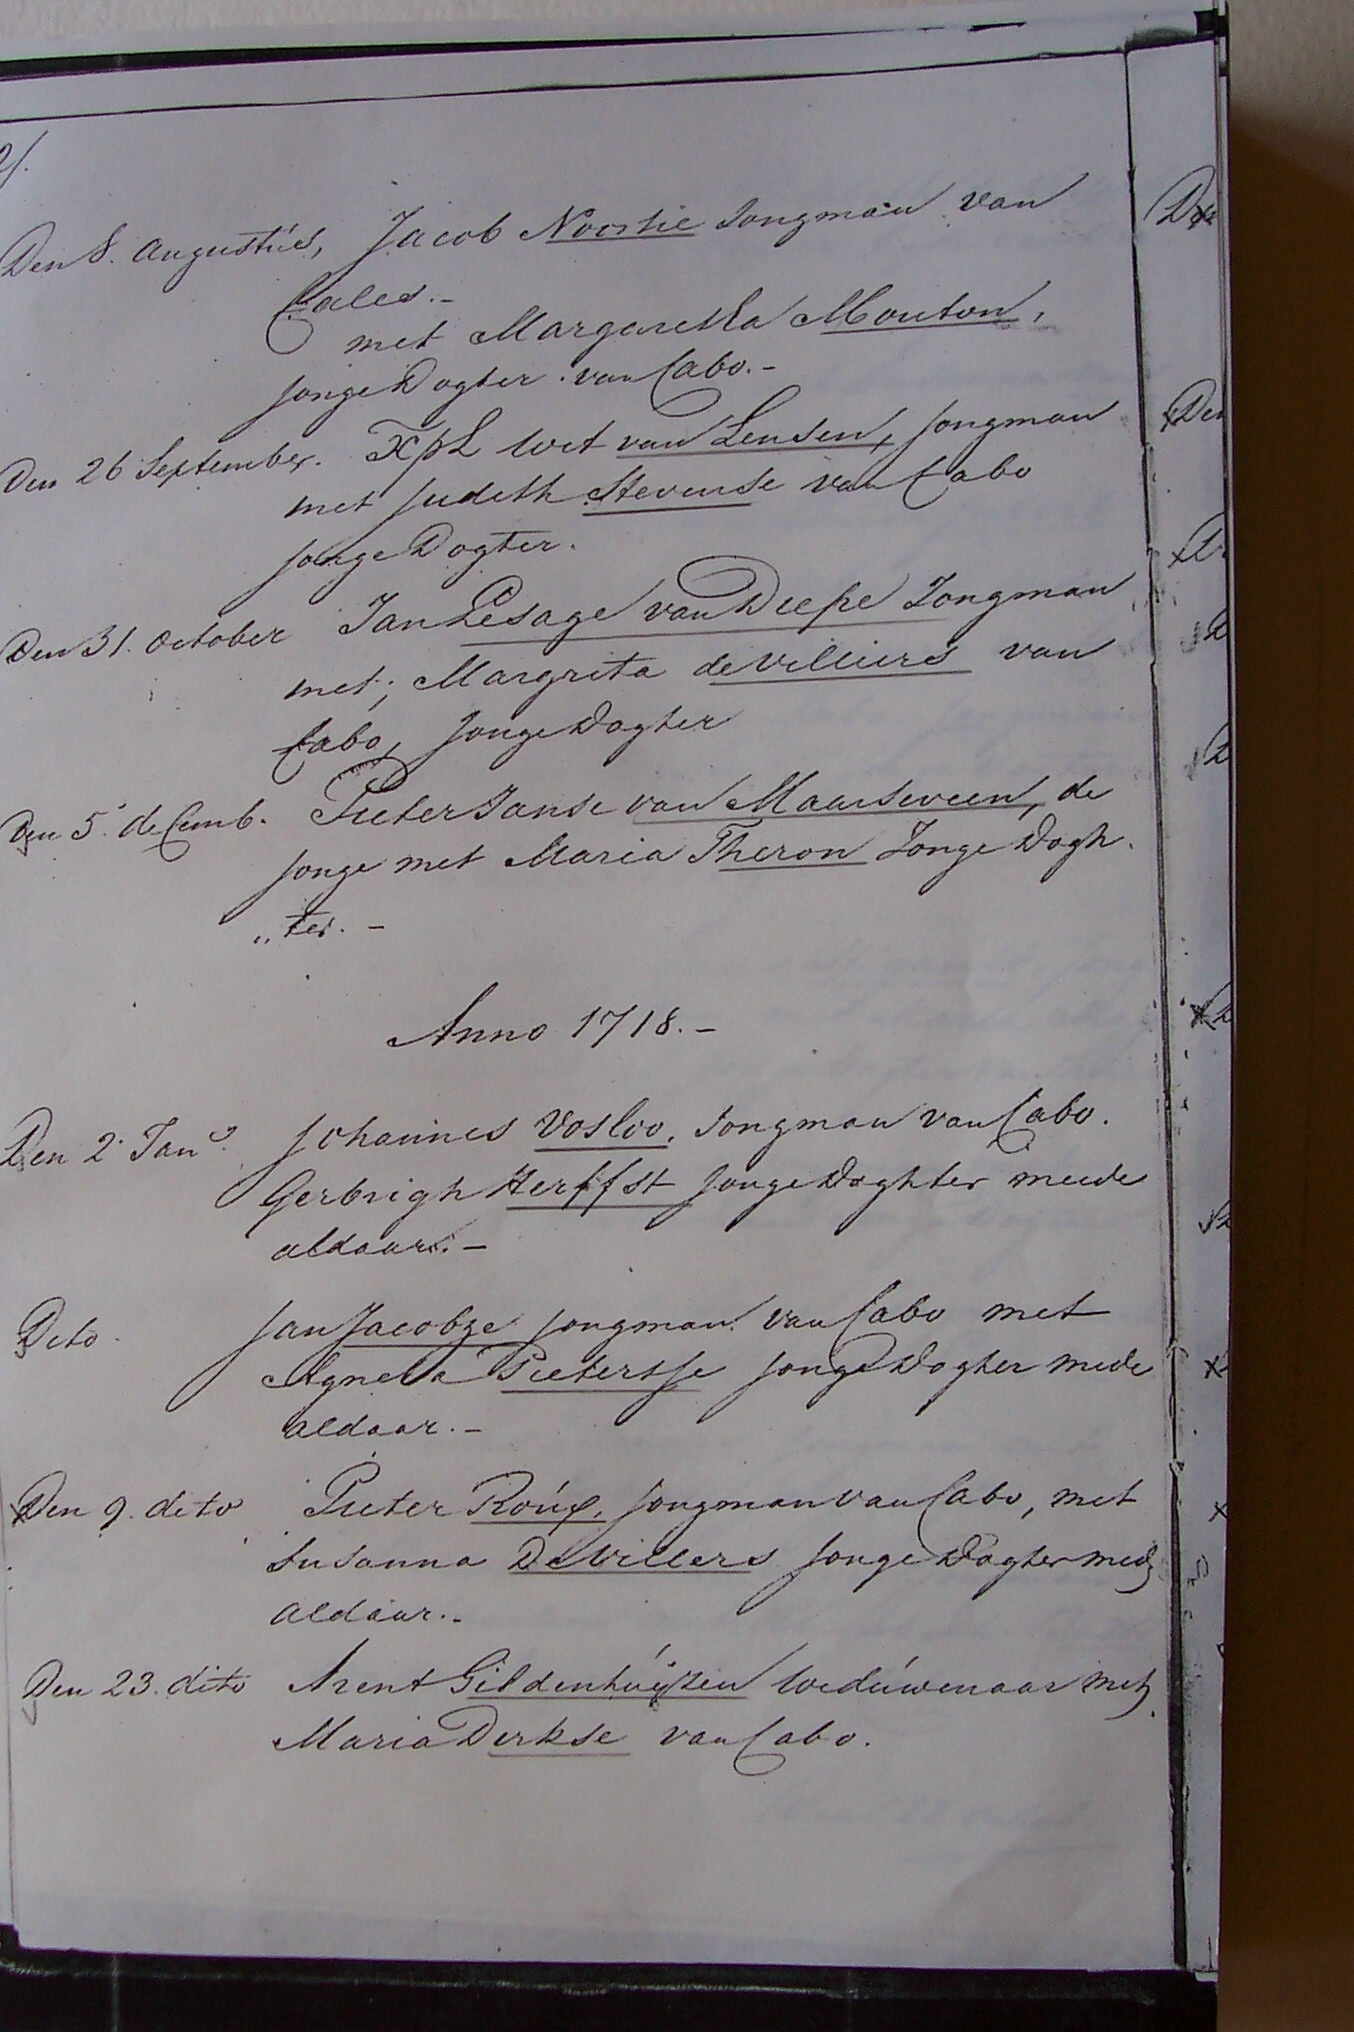 Den 8. Augustús, Jacob Noortie Jongman van
Cales.-
met Margaretha Mouton,
jonge Dogter van Cabo.-
Den 26 September. Xpl wit van Lensen, jongman
met judeth Stevense van Cabo
jonge Dogter.
Den 31. october Jan Lesage van Diepe Jongman
met, Margrita de villiers van
Cabo, jonge Dogter
Den 5 deCemb. Pieter Janse van Maarseveen, de
jonge met Maria Theron Jonge Dogh.
„ter.-
Anno 1718.-
Den 2 Jan. Johannes Vosloo, Jongman van Cabo.
Gerbrigh Herffst jonge Doghter meede
aldaar.-
Deto. Jan Jacobze jongman van Cabo met
Agneta Pietersse jonge Dogter mede
aldaar.-
Den 9. deto Pieter Roúx, jongman van Cabo, met
Susanna De Villers jonge Dogter mede
aldaar.-
Den 23. dito Arent Gildenhúÿzen wedúwenaar met
Maria Derkse van Cabo.